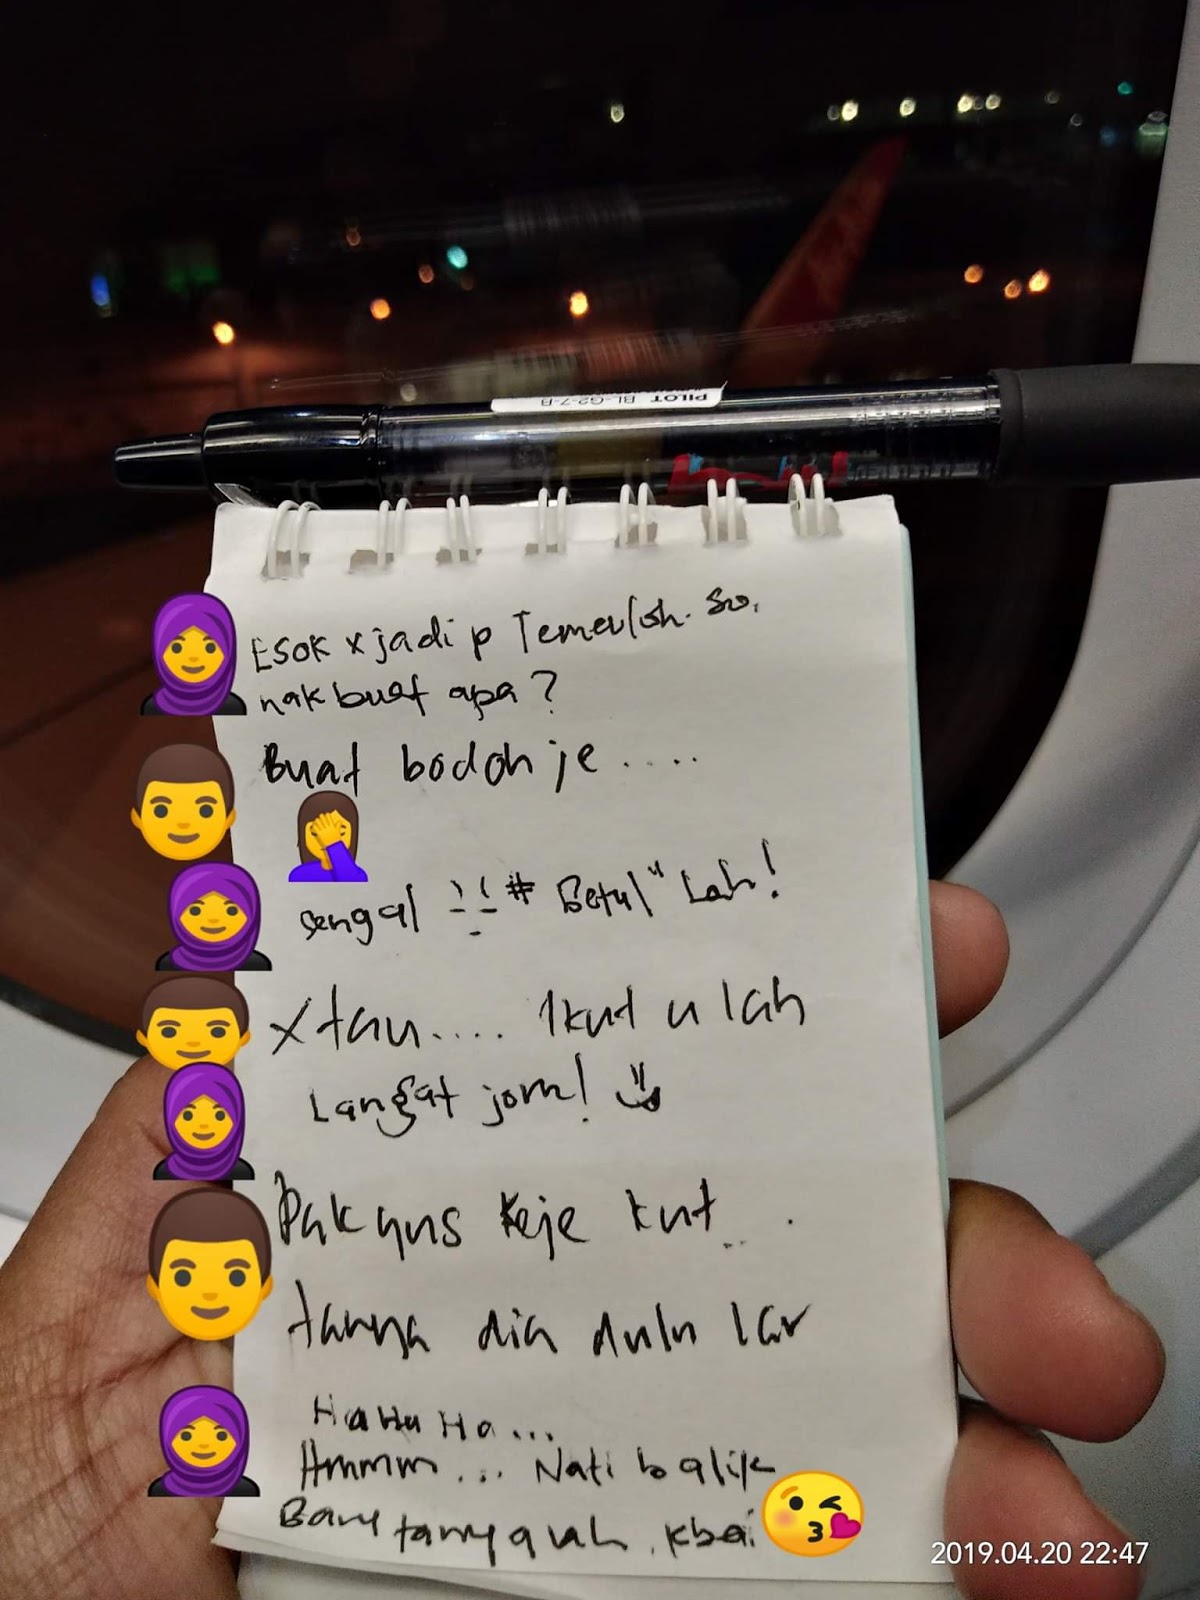 PILOT BL-G2-7-B
Esok x jadi p Temerloh. So,
nak buat apa?
Buat bodoh je .....
sengal # Betul" Lah!
x tau.... Ikut u lah
Langat jom!
Pak gus keje kut...
tanya dia dulu lar
HaHaHa...
Hmmm... Nati balik
Baru tanya lah, kbai
2019.04.20 22:47